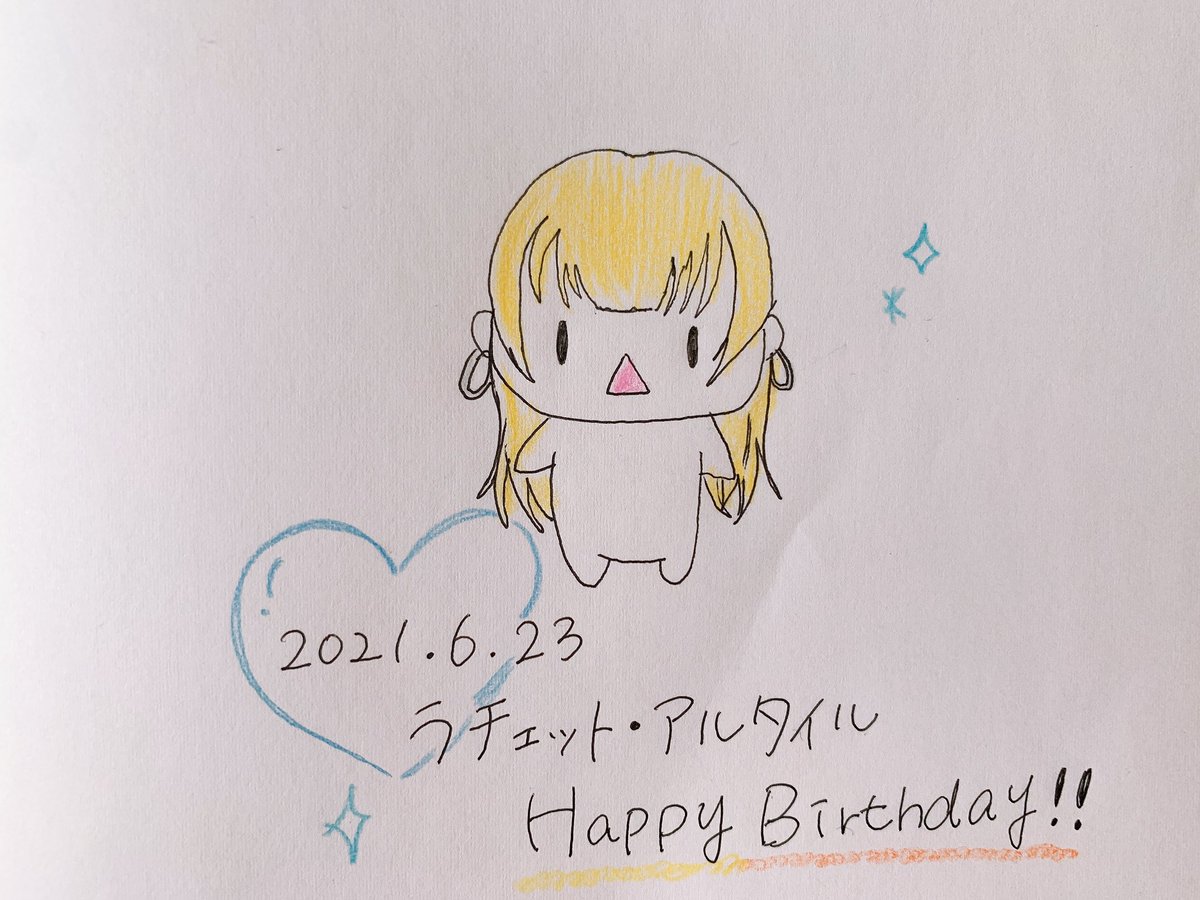 2021.6.23
ラチェット・アルタイル
Happy Birthday!!